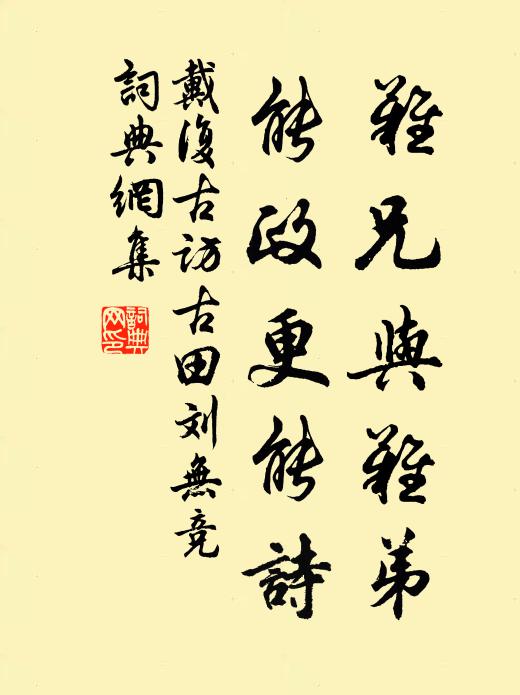 難兄與難弟
能政更能詩
戴復古訪古田刘無竞
詞典網集
詞典网印